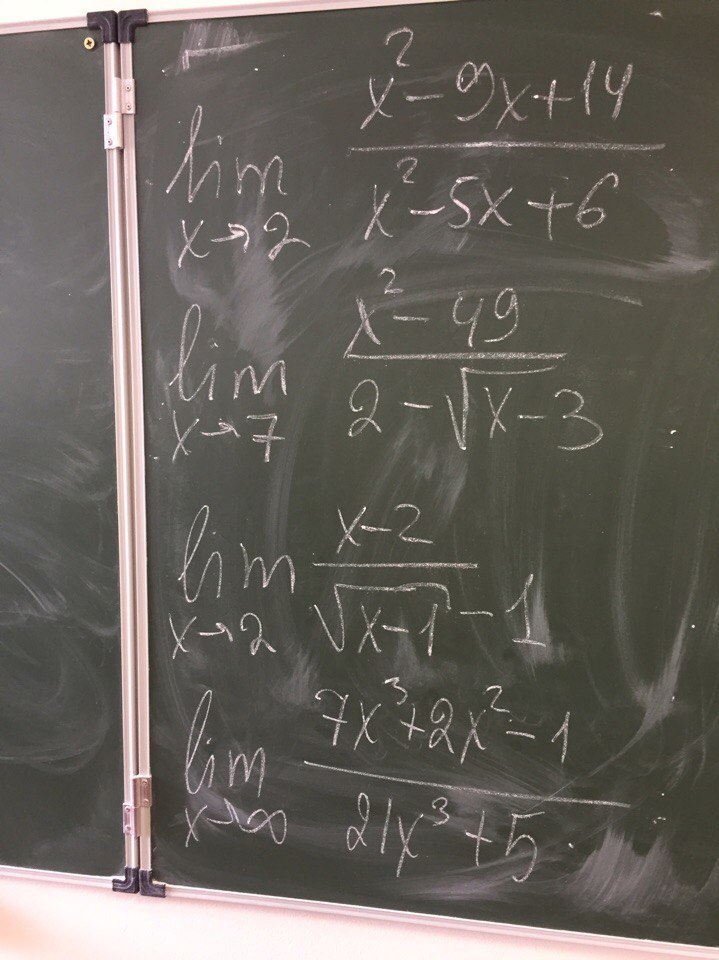 lim x→2 (x² - 9x + 14) / (x² - 5x + 6)
lim x→7 (x² - 49) / (2 - √(x - 3))
lim x→2 (x - 2) / (√(x - 1) - 1)
lim x→∞ (7x³ + 2x² - 1) / (21x³ + 5)